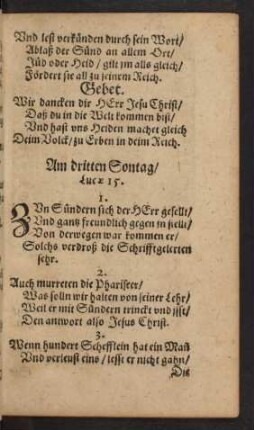 Vnd lest verkünden durch sein Wort/
Ablaß der Sünd an allem Ort/
Jüd oder Heid/ gilt jm alls gleich/
Fördert sie all zu seinem Reich.
Gebet.
Wir dancken dir HErr Jesu Christ/
Daß du in die Welt kommen bist/
Vnd hast vns Heiden machet gleich
Deim Volck/ zu Erben in deim Reich.
Am dritten Sontag/
Lucæ 15.
1.
ZVn Sündern sich der HErr gesellt/
Vnd gantz freundlich gegen jn stellt/
Von derwegen war kommen er/
Solchs verdroß die Schrifftgelerten
sehr.
2.
Auch murreten die Phariseer/
Was solln wir halten von seiner Lehr/
Weil er mit Sündern trinckt vnd jsst/
Den antwort also Jesus Christ.
3.
Wenn hundert Schefflein hat ein Mañ
Vnd verleust eins/ lesst er nicht gahn/
Die